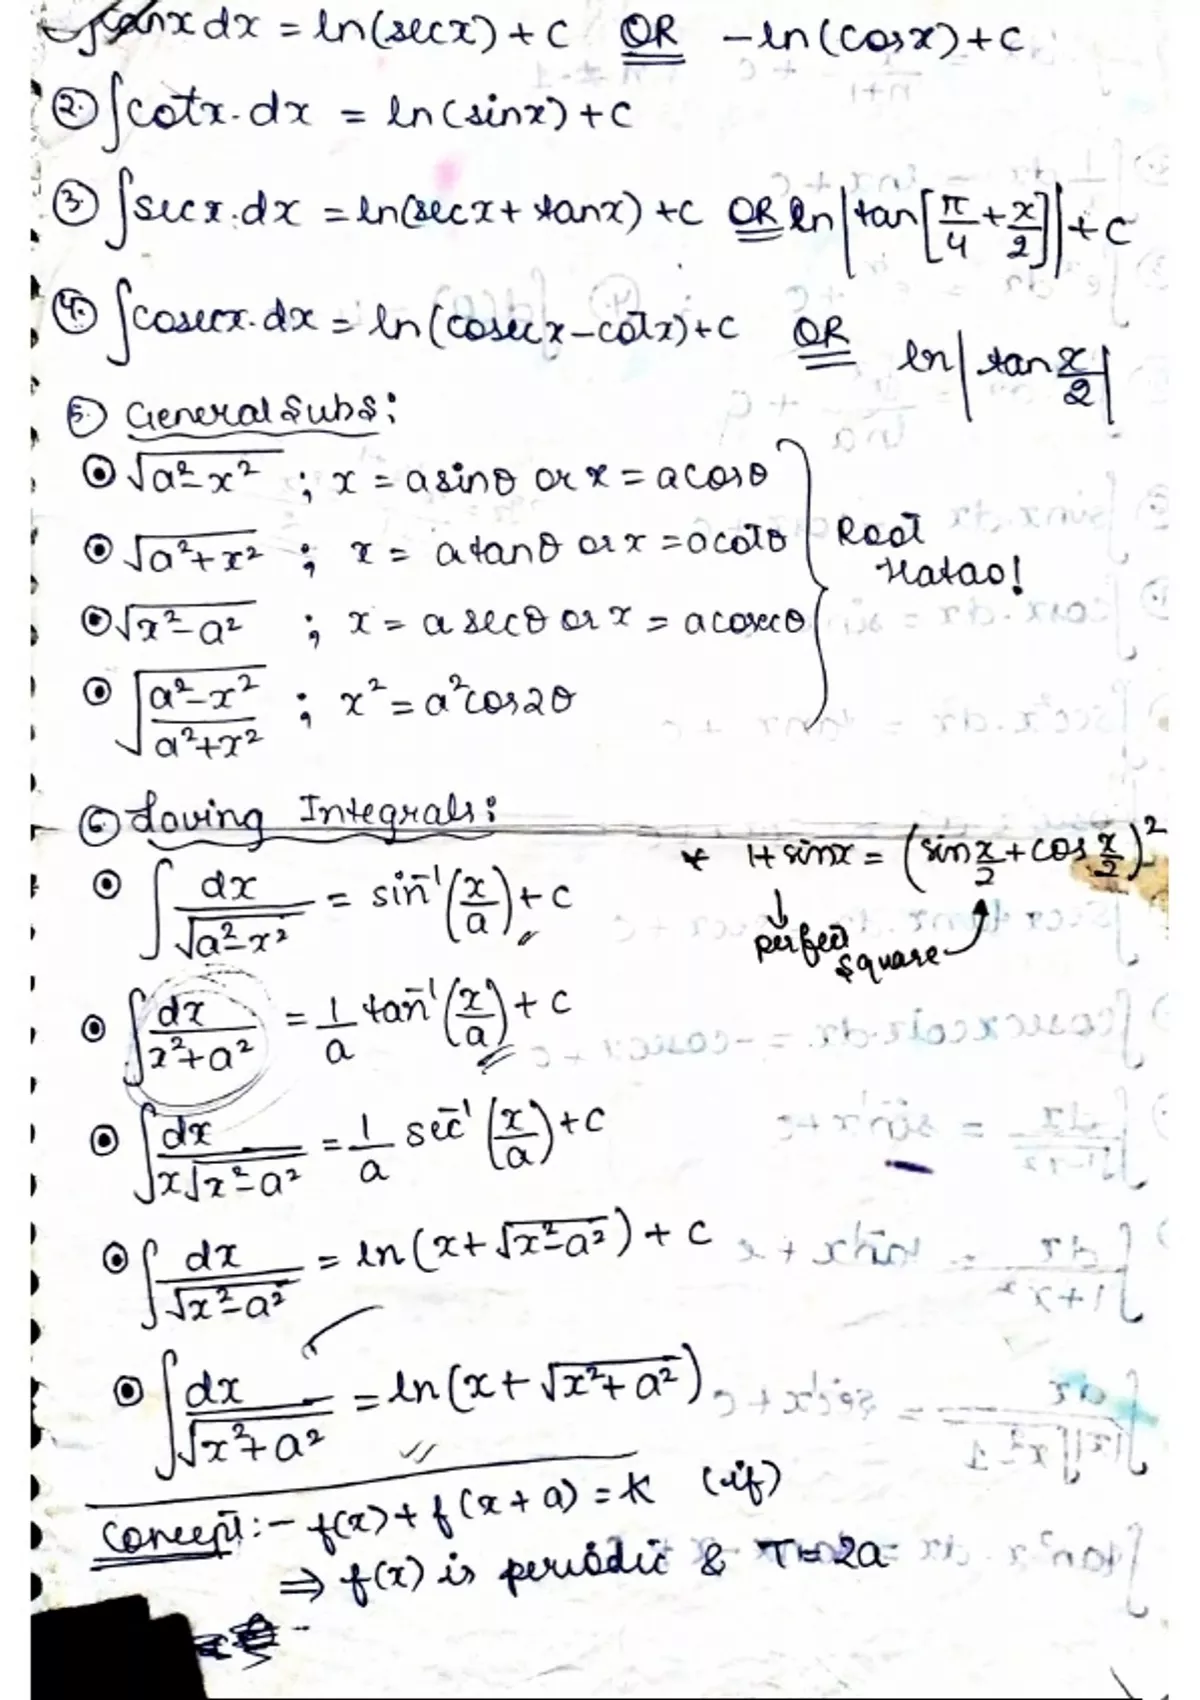 ∫tanx dx = ln(secx) + c OR -ln(cosx) + c
2. ∫cotx.dx = ln(sinx) + c
3. ∫secx.dx = ln(secx + tanx) + c OR ln|tan[π/4 + x/2]| + c
4. ∫cosecx.dx = ln(cosecx - cotx) + c OR ln|tan x/2|
5. General Subs:
⊙ √(a²-x²) ; x = a sinθ or x = a cosθ
⊙ √(a²+x²) ; x = a tanθ or x = a cotθ
Root Hatao!
⊙ √(x²-a²) ; x = a secθ or x = a cosecθ
⊙ √((a²-x²)/(a²+x²)) ; x² = a²cos2θ
6. Loving Integrals:
* 1+sinx = (sin x/2 + cos x/2)²
↓ perfect square
⊙ ∫dx/√(a²-x²) = sin⁻¹(x/a) + c
⊙ ∫dx/(x²+a²) = 1/a tan⁻¹(x/a) + c
⊙ ∫dx/(x√(x²-a²)) = 1/a sec⁻¹(x/a) + c
⊙ ∫dx/√(x²-a²) = ln(x + √(x²-a²)) + c
⊙ ∫dx/√(x²+a²) = ln(x + √(x²+a²))
Concept:- f(x) + f(x+a) = k (if)
⇒ f(x) is periodic & T = 2a